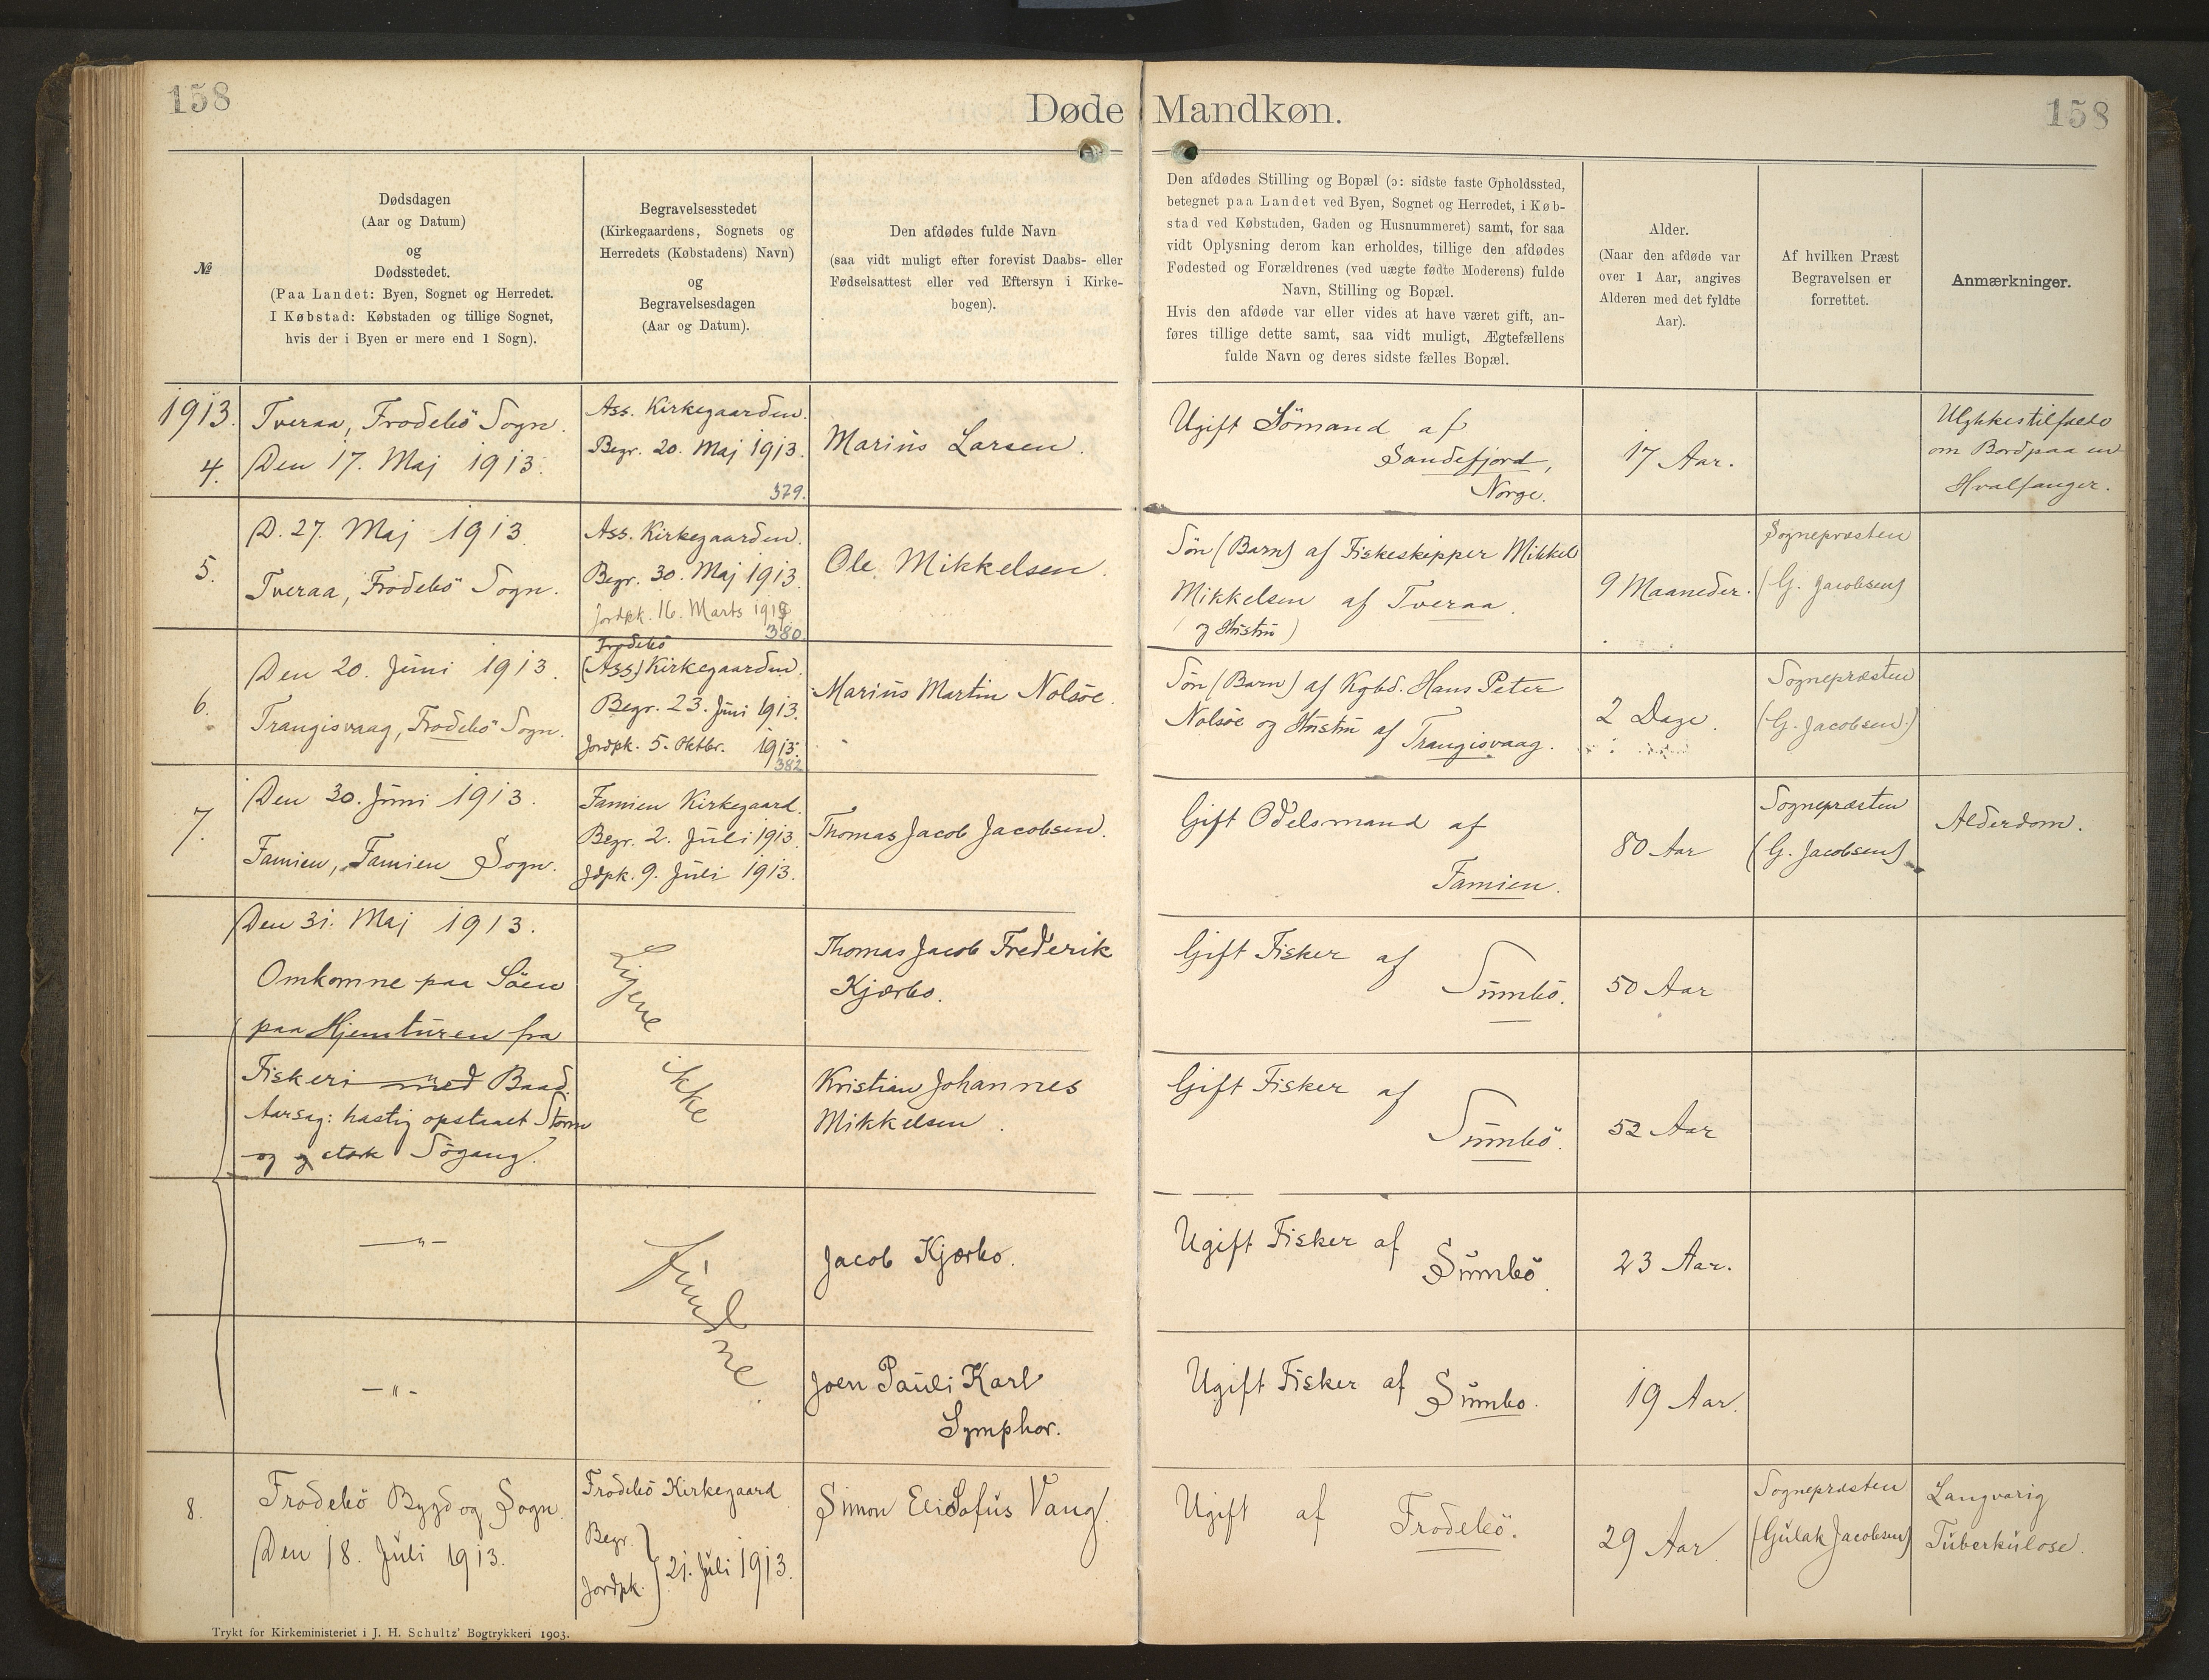 158
Døde Mandkøn.
158
№
Dødsdagen
(Aar og Datum)
og
Dødsstedet.
(Paa Landet: Byen, Sognet og Herredet.
I Købstad: Købstaden og tillige Sognet,
hvis der i Byen er mere end 1 Sogn).
Begravelsesstedet
(Kirkegaardens, Sognets og
Herredets (Købstadens) Navn)
og
Begravelsesdagen
(Aar og Datum).
Den afdødes fulde Navn
(saa vidt muligt efter forevist Daabs- eller
Fødselsattest eller ved Eftersyn i Kirke-
bogen).
Den afdødes Stilling og Bopæl (ɔ: sidste faste Opholdssted,
betegnet paa Landet ved Byen, Sognet og Herredet, i Køb-
stad ved Købstaden, Gaden og Husnummeret) samt, for saa
vidt Oplysning derom kan erholdes, tillige den afdødes
Fødested og Forældrenes (ved uægte fødte Moderens) fulde
Navn, Stilling og Bopæl.
Hvis den afdøde var eller vides at have været gift, an-
føres tillige dette samt, saa vidt muligt, Ægtefællens
fulde Navn og deres sidste fælles Bopæl.
Alder.
(Naar den afdøde var
over 1 Aar, angives
Alderen med det fyldte
Aar).
Af hvilken Præst
Begravelsen er
forrettet.
Anmærkninger.
1913.
4.
Tveraa, Frodebö Sogn.
Den 17. Maj 1913.
Ass. Kirkegaarden.
Begr. 20. Maj 1913.
379.
Marius Larsen.
Ugift Sömand af
Sandefjord,
Norge.
17 Aar.
Ulykkestilfælde
om Bord paa en
Hvalfanger.
5.
D. 27. Maj 1913.
Tveraa, Frodebö Sogn.
Ass. Kirkegaarden.
Begr. 30. Maj 1913.
Jordpk. 16. Marts
380
Ole Mikkelsen.
Sön (Barn) af Fiskeskipper Mikkel
Mikkelsen af Tveraa.
(og Hustru)
9 Maaneder.
Sognepræsten
(G. Jacobsen)
6.
Den 20. Juni 1913.
Trangisvaag, Frodebö Sogn.
Frodebö
(Ass.) Kirkegaarden.
Begr. 23. Juni 1913.
Jordpk. 5. Oktbr. 1913.
382
Marius Martin Nolsöe.
Sön (Barn) af Kgbd. Hans Peter
Nolsöe og Hustru af Trangisvaag.
2 Dage.
Sognepræsten
(G. Jacobsen.)
7.
Den 30. Juni 1913.
Famien, Famien Sogn.
Famien Kirkegaard.
Begr. 2. Juli 1913.
Jdpk. 9. Juli 1913.
Thomas Jacob Jacobsen.
Gift Odelsmand af
Famien.
80 Aar
Sognepræsten
(G. Jacobsen)
Alderdom.
Den 31. Maj 1913.
Omkomne paa Söen
paa Hjemturen fra
Fiskeri med Baad.
Aarsag: hastig opstaaet Storm
og stærk Sögang.
Ligene
ikke
fundne.
Thomas Jacob Frederik
Kjærbo.
Gift Fisker af
Sumbö.
50 Aar
Kristian Johannes
Mikkelsen.
Gift Fisker af
Sumbö.
52 Aar
—"—
Jacob Kjærbo.
Ugift Fisker af
Sumbö.
23 Aar.
—"—
Joen Pauli Karl
Symphor.
Ugift Fisker af Sumbo.
19 Aar.
8.
Frodebö Bygd og Sogn.
Den 18. Juli 1913.
Frodebö Kirkegaard
Begr.
Jordpk. } 21. Juli 1913.
Simon Eli Sofus Vang.
Ugift af Frodebö.
29 Aar.
Sognepræsten
(Gulak Jacobsen)
Langvarig
Tuberkulose.
Trykt for Kirkeministeriet i J. H. Schultz' Bogtrykkeri 1903.